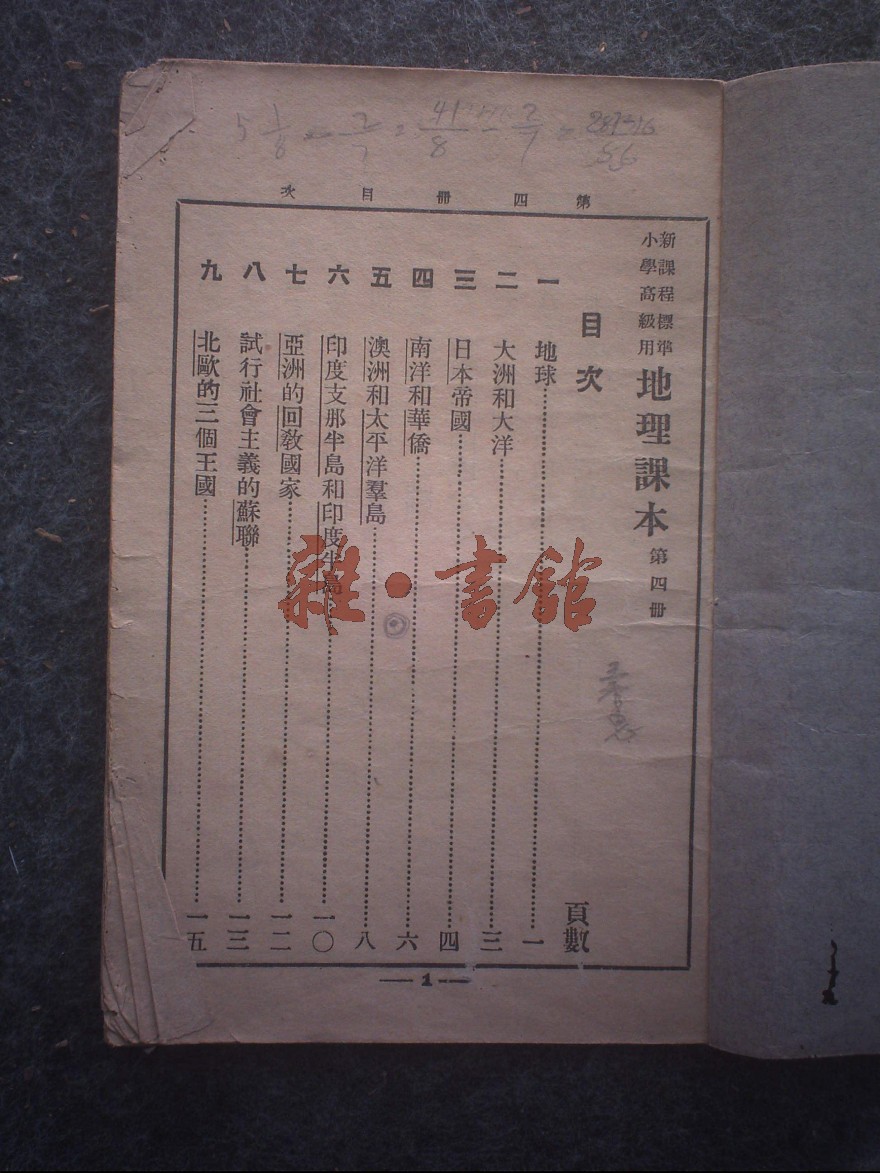 5 1/8 - 2/7 = 41/8 - 2/7 = 287-16/56
第四冊目次
新課程標準
小學高級用
地理課本 第四冊
目次 頁數
一 地球 一
二 大洲和大洋 三
三 日本帝國 四
四 南洋和華僑 六
五 澳洲和太平洋羣島 八
六 印度支那半島和印度半島 一〇
七 亞洲的回教國家 一二
八 試行社會主義的蘇聯 一三
九 北歐的三個王國 一五
— 1 —
雜·書館